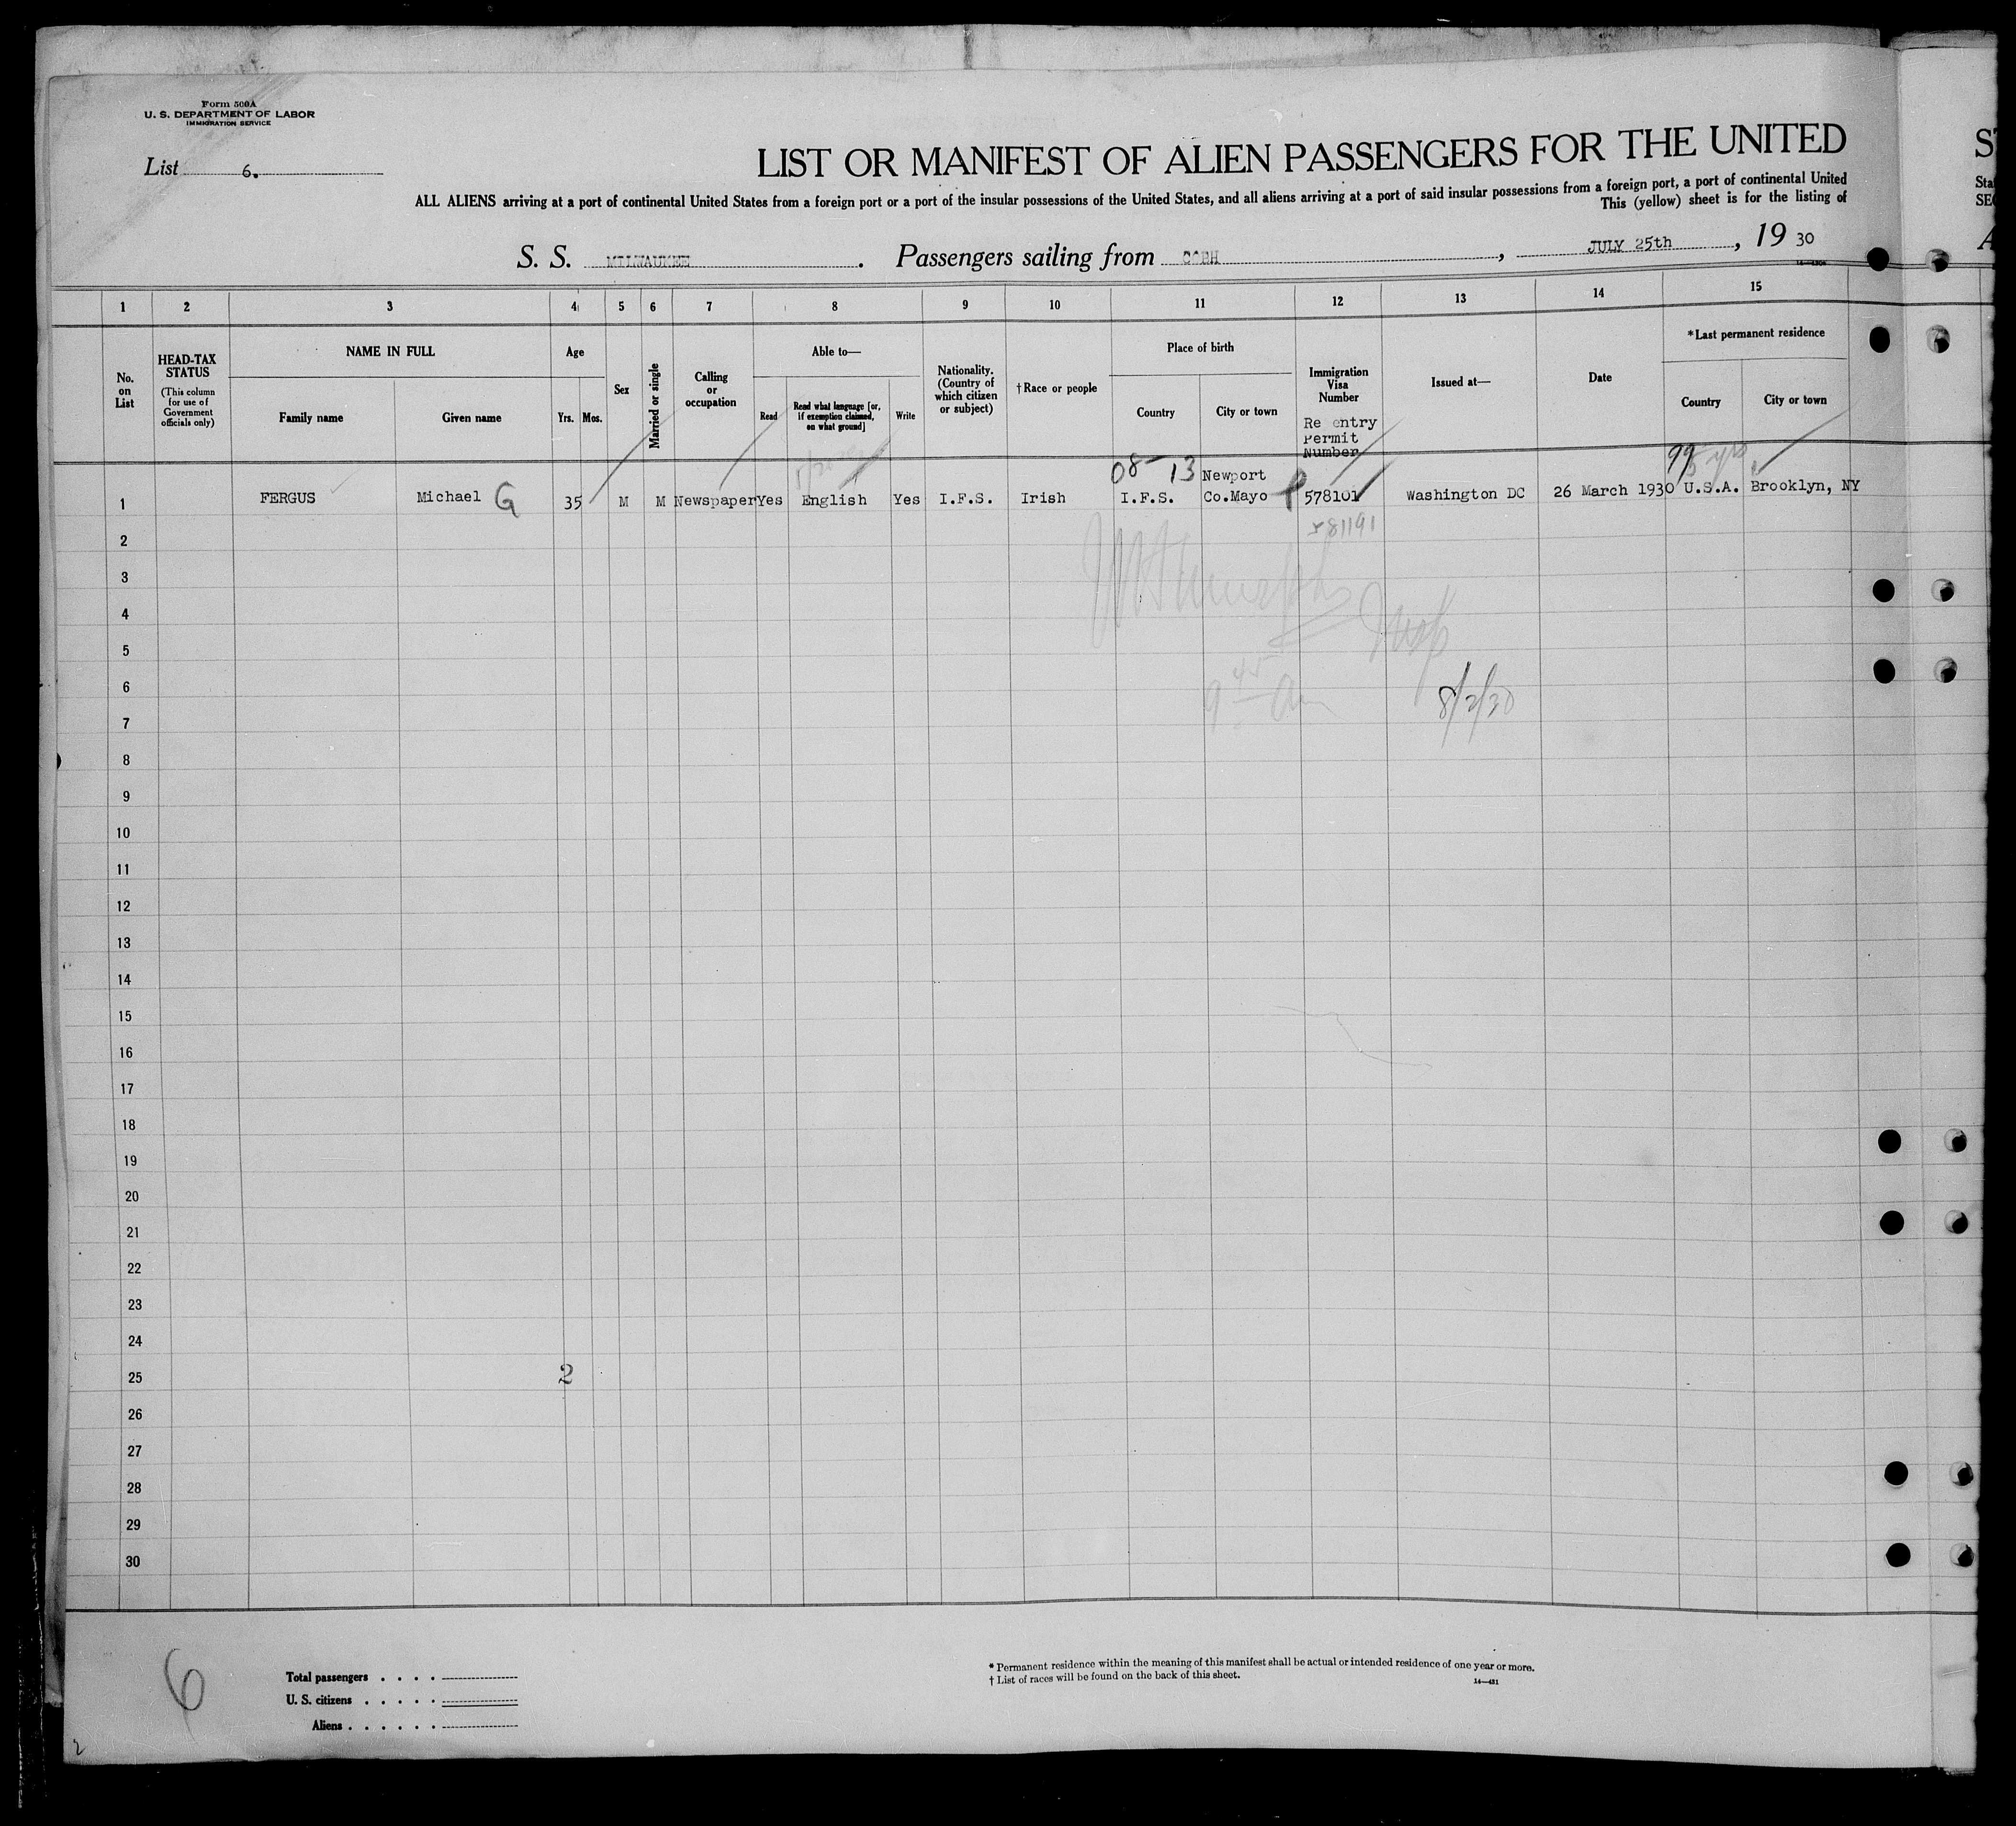 Form 500A
U. S. DEPARTMENT OF LABOR
IMMIGRATION SERVICE
List 6.
LIST OR MANIFEST OF ALIEN PASSENGERS FOR THE UNITED
ALL ALIENS arriving at a port of continental United States from a foreign port or a port of the insular possessions of the United States, and all aliens arriving at a port of said insular possessions from a foreign port, a port of continental United
This (yellow) sheet is for the listing of
S. S. MILWAUKEE. Passengers sailing from COBH, JULY 25th, 19 30
1 2 3 4 5 6 7 8 9 10 11 12 13 14 15
No. on List
HEAD-TAX STATUS
(This column for use of Government officials only)
NAME IN FULL
Family name Given name
Age
Yrs. Mos.
Sex
Married or single
Calling or occupation
Able to—
Read
Read what language [or, if exemption claimed, on what ground]
Write
Nationality. (Country of which citizen or subject)
†Race or people
Place of birth
Country City or town
Immigration Visa Number
Re entry Permit Number
Issued at—
Date
*Last permanent residence
Country City or town
08 13 Newport 99 5 yrs
1 FERGUS Michael G 35 M M Newspaper Yes English Yes I.F.S. Irish I.F.S. Co.Mayo P 578101 Washington DC 26 March 1930 U.S.A. Brooklyn, NY
2
3
4
5
6
7
8
9
10
11
12
13
14
15
16
17
18
19
20
21
22
23
24
25
26
27
28
29
30
581191
Insp
9 45 Am
8/2/30
2
6
Total passengers
U. S. citizens
Aliens
* Permanent residence within the meaning of this manifest shall be actual or intended residence of one year or more.
† List of races will be found on the back of this sheet.
14—431
2